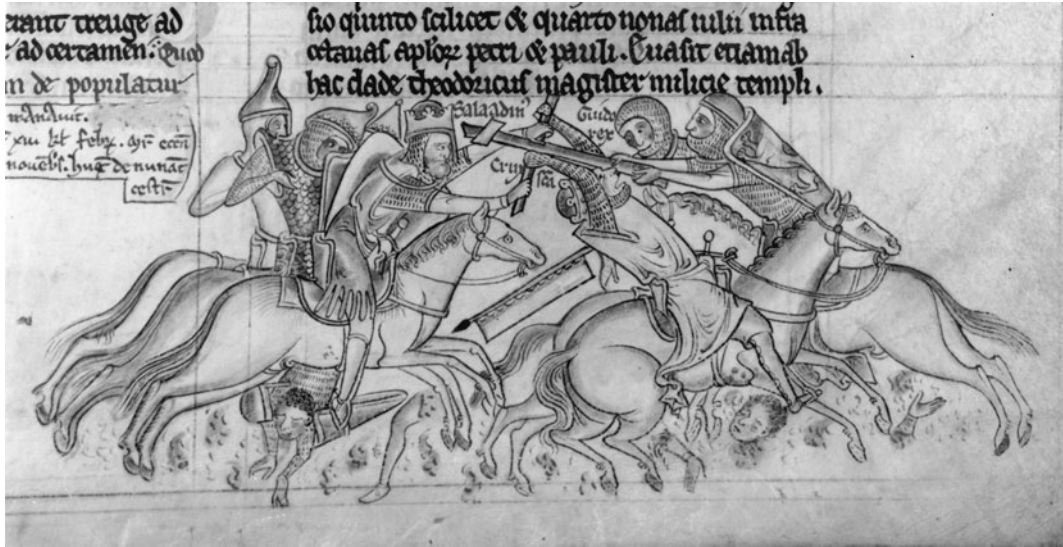 erant treuge ad
ad certamen. Quod
n de populatur
mandavit.
xiii kł febr.
novēbs. hug de nunant
cestr
sio quinto scilicet & quarto nonas iulii infra
octavas aplorꝝ petri & pauli. Evasit etiam ab
hac clade theodoricus magister milicie templi.
Salaadinꝰ
Guido
rex
Crux
sc̄a